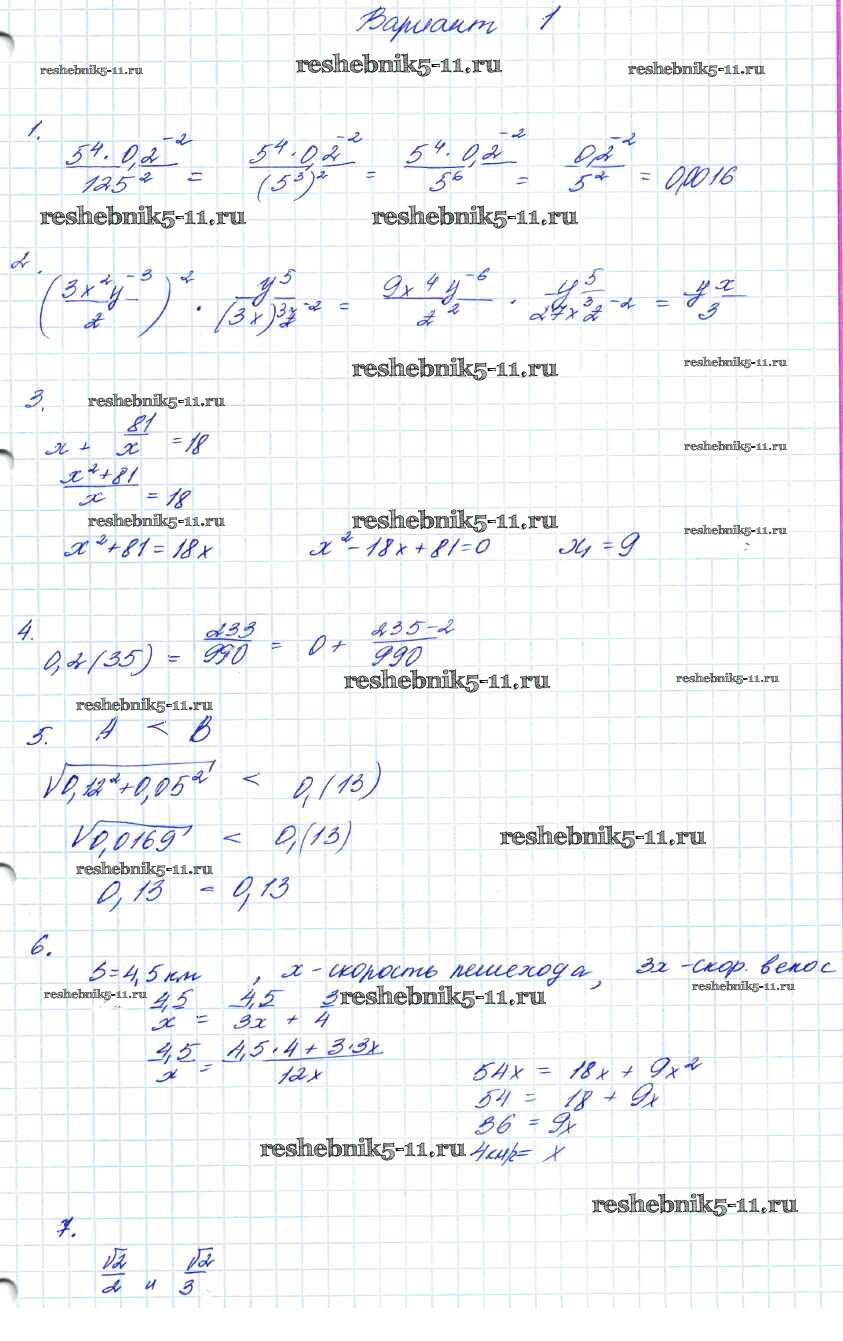 Вариант 1
reshebnik5-11.ru reshebnik5-11.ru reshebnik5-11.ru
1.
5⁴·0,2⁻²/125² = 5⁴·0,2⁻²/(5³)² = 5⁴·0,2⁻²/5⁶ = 0,2⁻²/5² = 0,0016
reshebnik5-11.ru reshebnik5-11.ru
2.
(3x²y⁻³/z)² · y⁵/(3x)³z⁻² = 9x⁴y⁻⁶/z² · y⁵/27x³z⁻² = yx/3
reshebnik5-11.ru reshebnik5-11.ru
3. reshebnik5-11.ru
x + 81/x = 18
reshebnik5-11.ru
(x²+81)/x = 18
reshebnik5-11.ru reshebnik5-11.ru reshebnik5-11.ru
x²+81=18x x²-18x+81=0 x₁=9
4.
0,2(35) = 233/990 = 0 + (235-2)/990
reshebnik5-11.ru reshebnik5-11.ru
reshebnik5-11.ru
5. A < B
√(0,12²+0,05²) < 0,(13)
√0,0169 < 0,(13) reshebnik5-11.ru
reshebnik5-11.ru
0,13 = 0,13
6.
S=4,5 км, x - скорость пешехода, 3x - скор. велос
reshebnik5-11.ru reshebnik5-11.ru reshebnik5-11.ru
4,5/x = 4,5/3x + 3/4
4,5/x = (4,5·4+3·3x)/12x
54x = 18x + 9x²
54 = 18 + 9x
36 = 9x
reshebnik5-11.ru 4км/ч= x
reshebnik5-11.ru
7.
√2/2 и √2/3